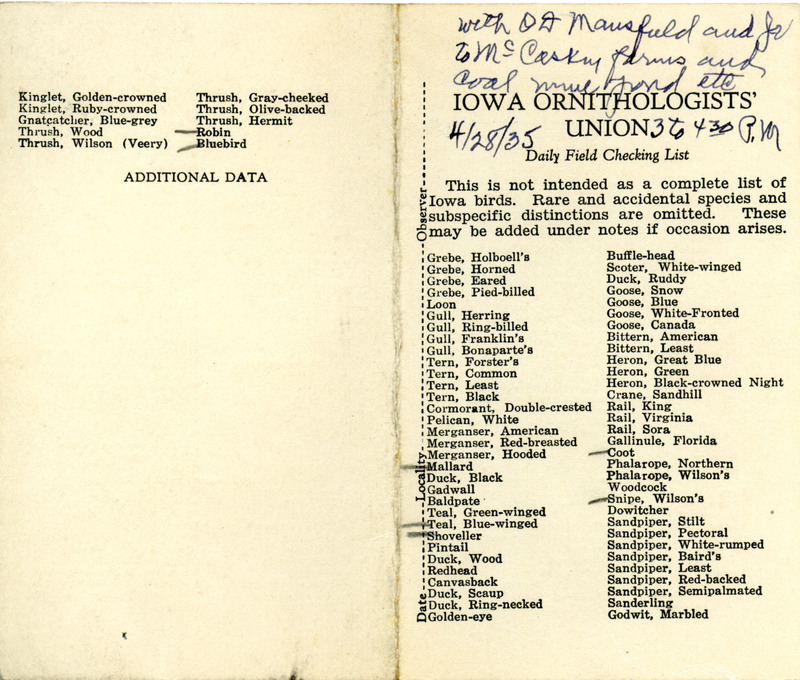 Kinglet, Golden-crowned
Kinglet, Ruby-crowned
Gnatcatcher, Blue-grey
Thrush, Wood
Thrush, Wilson (Veery)
Thrush, Gray-cheeked
Thrush, Olive-backed
Thrush, Hermit
Robin
Bluebird
ADDITIONAL DATA
with O A Mansfield and Jr
to McCaskey farms and
coal mine pond etc
IOWA ORNITHOLOGISTS'
4/28/35 UNION 3 to 4 30 P.M
Daily Field Checking List
This is not intended as a complete list of
Iowa birds. Rare and accidental species and
subspecific distinctions are omitted. These
may be added under notes if occasion arises.
Date Locality Observer
Grebe, Holboell's
Grebe, Horned
Grebe, Eared
Grebe, Pied-billed
Loon
Gull, Herring
Gull, Ring-billed
Gull, Franklin's
Gull, Bonaparte's
Tern, Forster's
Tern, Common
Tern, Least
Tern, Black
Cormorant, Double-crested
Pelican, White
Merganser, American
Merganser, Red-breasted
Merganser, Hooded
Mallard
Duck, Black
Gadwall
Baldpate
Teal, Green-winged
Teal, Blue-winged
Shoveller
Pintail
Duck, Wood
Redhead
Canvasback
Duck, Scaup
Duck, Ring-necked
Golden-eye
Buffle-head
Scoter, White-winged
Duck, Ruddy
Goose, Snow
Goose, Blue
Goose, White-Fronted
Goose, Canada
Bittern, American
Bittern, Least
Heron, Great Blue
Heron, Green
Heron, Black-crowned Night
Crane, Sandhill
Rail, King
Rail, Virginia
Rail, Sora
Gallinule, Florida
Coot
Phalarope, Northern
Phalarope, Wilson's
Woodcock
Snipe, Wilson's
Dowitcher
Sandpiper, Stilt
Sandpiper, Pectoral
Sandpiper, White-rumped
Sandpiper, Baird's
Sandpiper, Least
Sandpiper, Red-backed
Sandpiper, Semipalmated
Sanderling
Godwit, Marbled